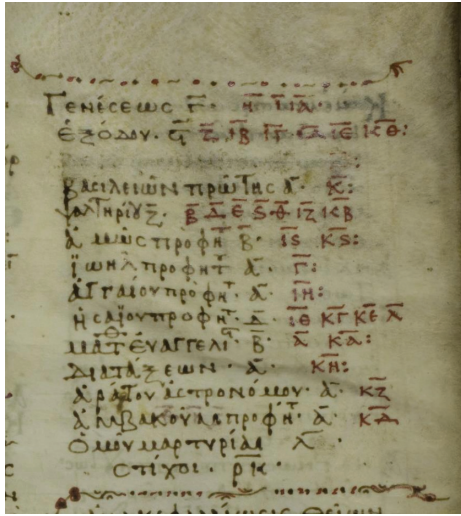 Γενέσεως γ̅· η̅ ι̅ ι̅α̅·
ἐξόδου· ϛ̅ ζ̅ ι̅β̅ ι̅γ̅ ι̅δ̅ ι̅ε̅ κ̅θ̅:
βασιλειῶν πρώτης α̅· κ̅:
ψαλτηρίου ζ̅· β̅ δ̅ ε̅ ϛ̅ θ̅ ι̅ζ̅ κ̅β̅
ἀμὼς προφητ β̅· ι̅ϛ̅ κ̅ϛ̅:
ϊωὴλ προφητ α̅· γ̅:
ἀγγαίου προφητ· α̅· ι̅η̅:
ἠσαίου προφητ· δ̅· ι̅θ̅ κ̅γ̅ κ̅ε̅ λ̅
ματθ εὐαγγελι β̅· α̅ κ̅α̅:
διατάξεων· α̅· κ̅η̅:
ἀράτου ἀστρονόμου· α̅· κ̅ζ̅
ἀμβακοὺμ προφητ· α̅· κ̅δ̅
ὁμοῦ μαρτυρίαι λ̅·
στίχοι· ρ̅κ̅·